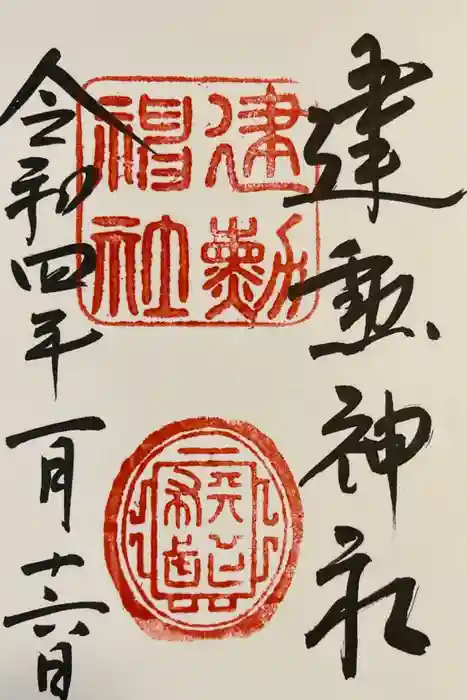 建勲神社
建勲
神社
令和四年一月十六日